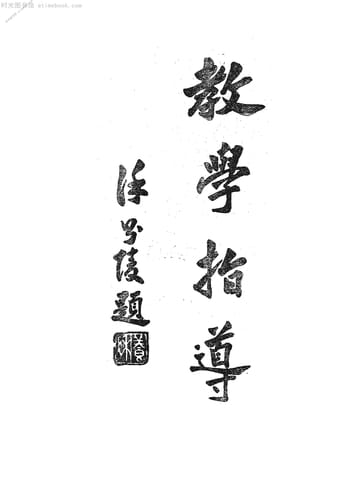 时光图书馆 etimebook.com
教學指導
徐少陵題